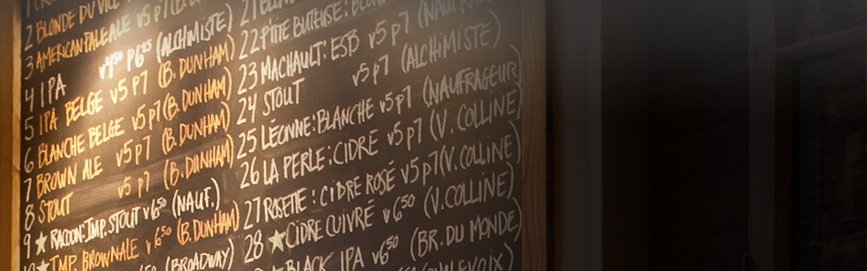 2 BLONDE DU VICE
3 AMERICAN PALE ALE v5 P
4 IPA v4⁵⁰ P6²⁵ (ALCHIMISTE)
5 IPA BELGE v5 p7 (B. DUNHAM)
6 BLANCHE BELGE v5 p7 (B. DUNHAM)
7 BROWN ALE v5 p7 (B. DUNHAM)
8 STOUT v5 p7 (B. DUNHAM)
9 ★ RACOON: IMP. STOUT v6⁵⁰ (NAUF.)
★ IMP. BROWN ALE v6⁵⁰ (B. DUNHAM)
(BROADWAY)
21
22 P'TITE BUTEUSE: v5 p7 (NAUFRA
23 MACHAULT: ESB v5 p7 (ALCHIMISTE)
24 STOUT v5 p7 (NAUFRAGEUR)
25 LÉONNE: BLANCHE v5 p7 (V. COLLINE)
26 LA PERLE: CIDRE v5 p7 (V. COLLINE)
27 ROSETTE: CIDRE ROSÉ v5 p7 (V. COLLINE)
28 ★ CIDRE CUIVRÉ v6⁵⁰ (V. COLLINE)
BLACK IPA v6⁵⁰ (BR. DU MONDE)